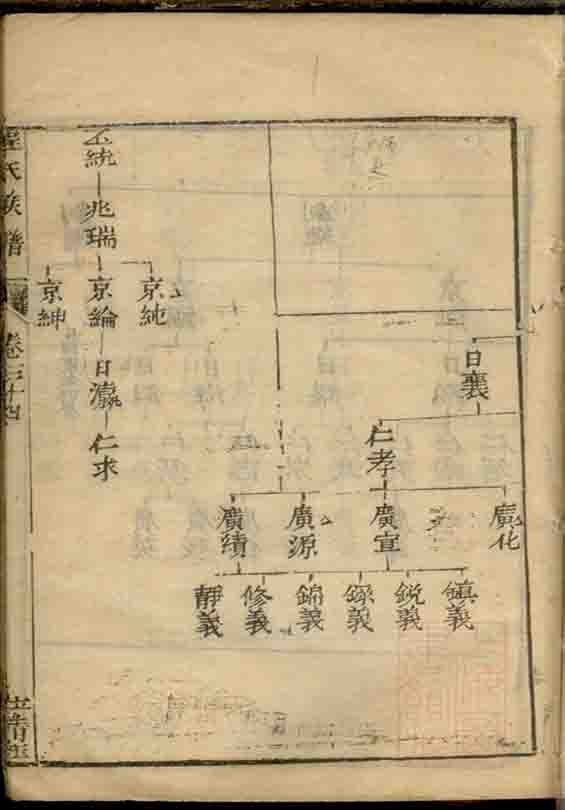 日襄
仁孝
廣化
廣宣
廣源
廣績
鎮義
銳義
錦義
修義
靜義
丕統
兆瑞
京純
京綸
京紳
仁求
氏族譜
卷三十四